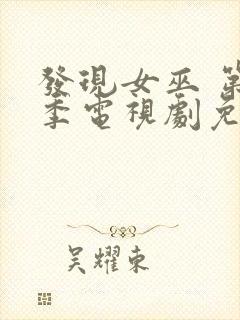 發現女巫 第
季電視劇免
吳耀東